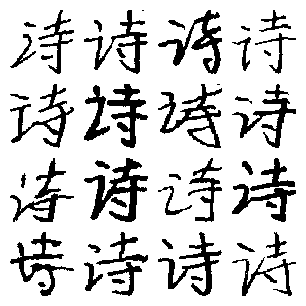 诗诗诗诗
诗诗诗诗
诗诗诗诗
诗诗诗诗